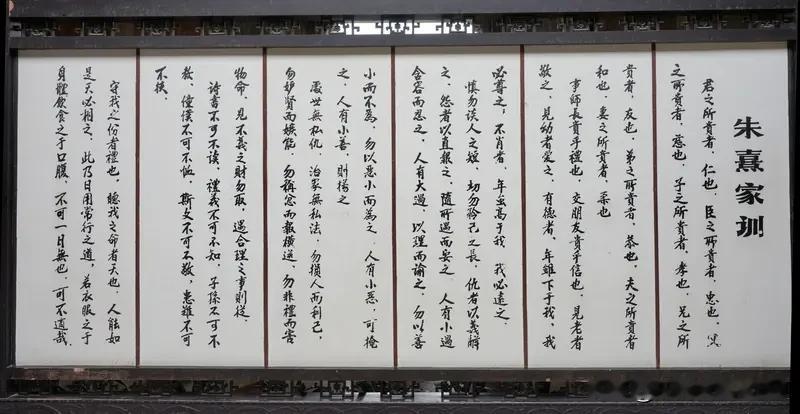 朱熹家训
君之所貴者，仁也，臣之所貴者，忠也，父
之所貴者，慈也，子之所貴者，孝也，兄之所
貴者，友也，弟之所貴者，恭也，夫之所貴者
和也，妻之所貴者，柔也
事師長貴乎禮也，交朋友貴乎信也，見老者
敬之，見幼者愛之，有德者，年雖下于我，我
必尊之，不肖者，年虽高于我，我必遠之，
慎勿谈人之短，切勿矜己之長，仇者以義解
之，怨者以直報之，隨所遇而安之，人有小過
含容而忍之，人有大過，以理而諭之，勿以善
小而不為，勿以惡小而為之，人有小惡，可掩
之，人有小善，則揚之
處世無私仇，治家無私法，勿損人而利己，
勿妒賢而嫉能，勿稱忿而報橫逆，勿非禮而害
物命，見不義之財勿取，遇合理之事則從，
詩書不可不读，禮義不可不知，子孫不可不
教，僮僕不可不恤，斯文不可不敬，患難不可
不扶，
守我之份者禮也，聽我之命者天也，人能如
是天必相之，此乃日用常行之道，若衣服之于
身體飲食之于口腹，不可一日無也，可不慎哉，